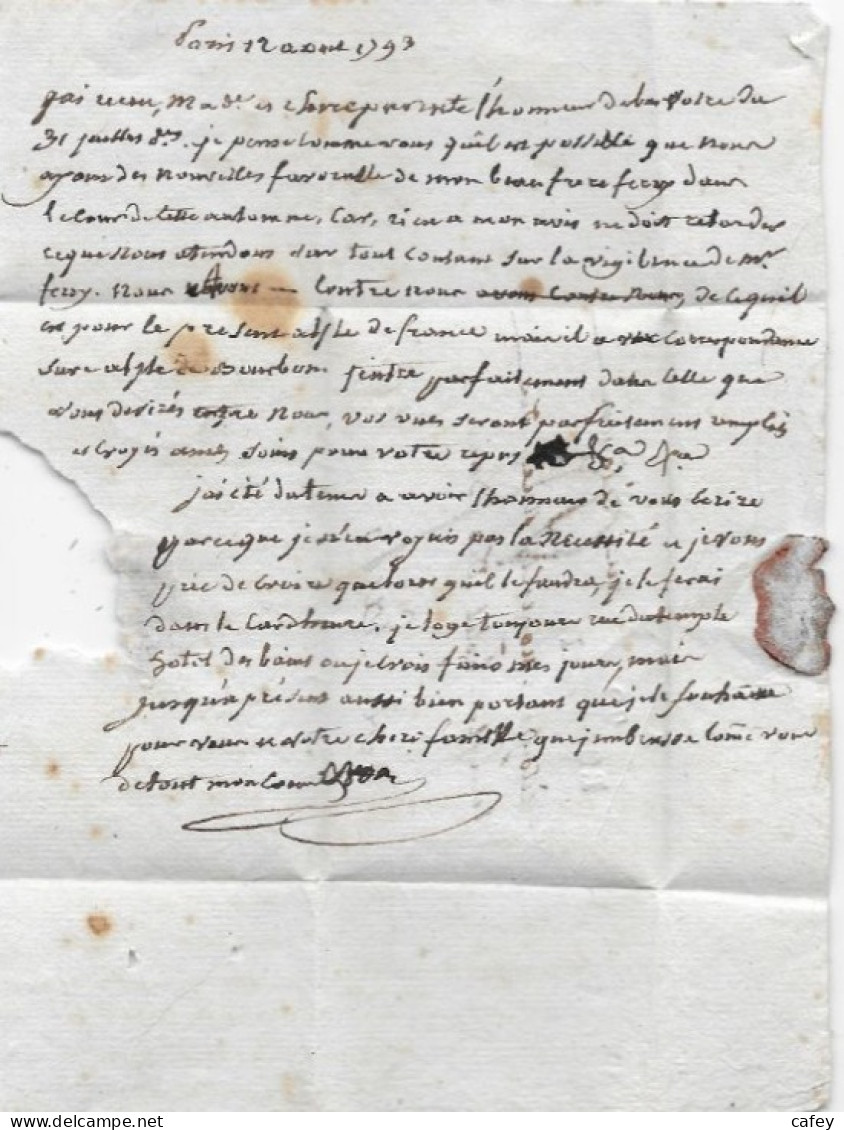 Paris 12 aout 1793
jai recu, mad.e et chere parente l'honneur de la votre du
31 juillet d.er je pense comme vous quil est possible que nous
ayons des nouvelles favorable de mon beau frere ferry dans
le cour de cette automne, car, rien a mon avis ne doit retarder
ce que nous atendons sur tout contant sur la vigilence de mr.
ferry. nous avons contre nous avons contre nous, de ce quil
est pour le present alisle de france mais il a correspondance
sur alisle de Bourbon j'entre parfaitement dans celle que
vous desirés entre nous, vos vues seront parfaitement remplis
et croyés a mes soins pour votre repos &a &a
jai été du tems a avoir lhonneur de vous ecrire
parceque je n'en voyais pas la necessité et je vous
prie de croire que lorsquil le faudra, je le ferai
dans le cardheure. je loge toujours rue du temple
hotel des bains ou je crois finir mes jours, mais
jusqu'a présent aussi bien portant que je le souhaitte
pour vous et votre chere famille que j'embrasse come vous
de tout mon coeur
cafey